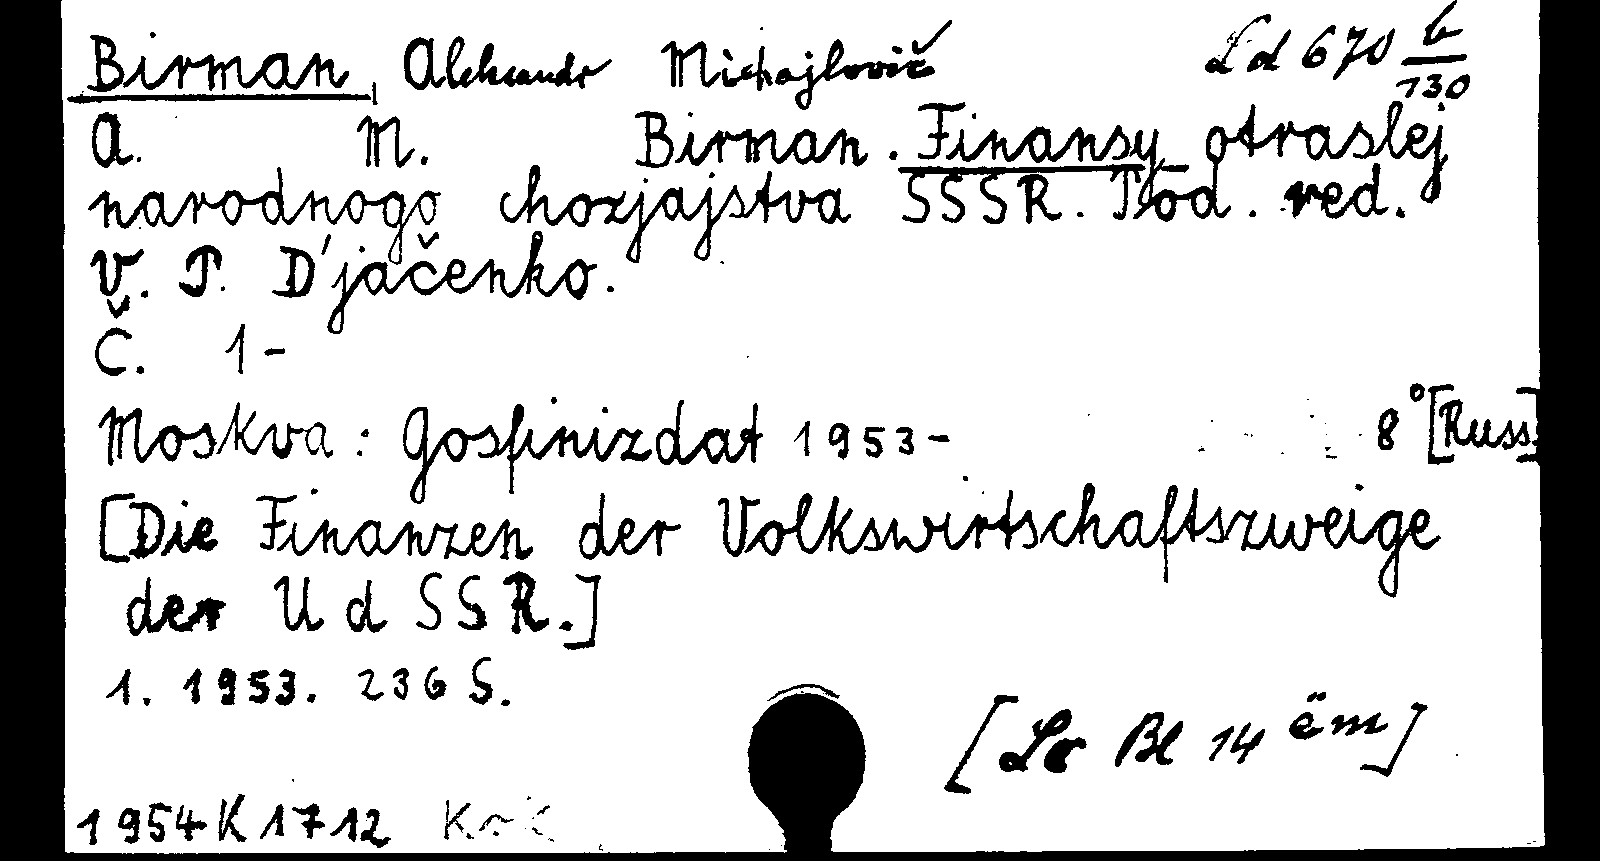 Birman, Aleksandr Michajlovič Ld 670 b/130
A. M. Birman. Finansy otraslej
narodnogo chozjajstva SSSR. Pod. red.
V. P. D'jačenko.
Č. 1-
Moskva: Gosfinizdat 1953- 8° [Russ.]
[Die Finanzen der Volkswirtschaftszweige
der UdSSR.]
1. 1953. 236 S.
[Ls Bl 14 ëm]
1954 K 1712